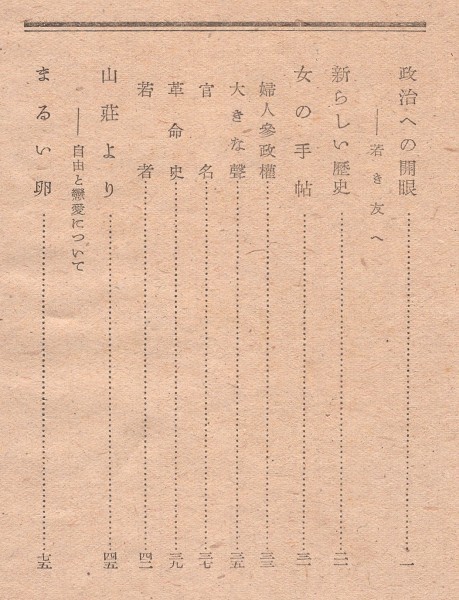 政治への開眼……一
――若き友へ
新らしい歷史……二一
女の手帖……三一
婦人參政權……三三
大きな聲……三五
官名……三七
革命史……三九
若者……四二
山莊より……四五
――自由と戀愛について
まるい卵……七五